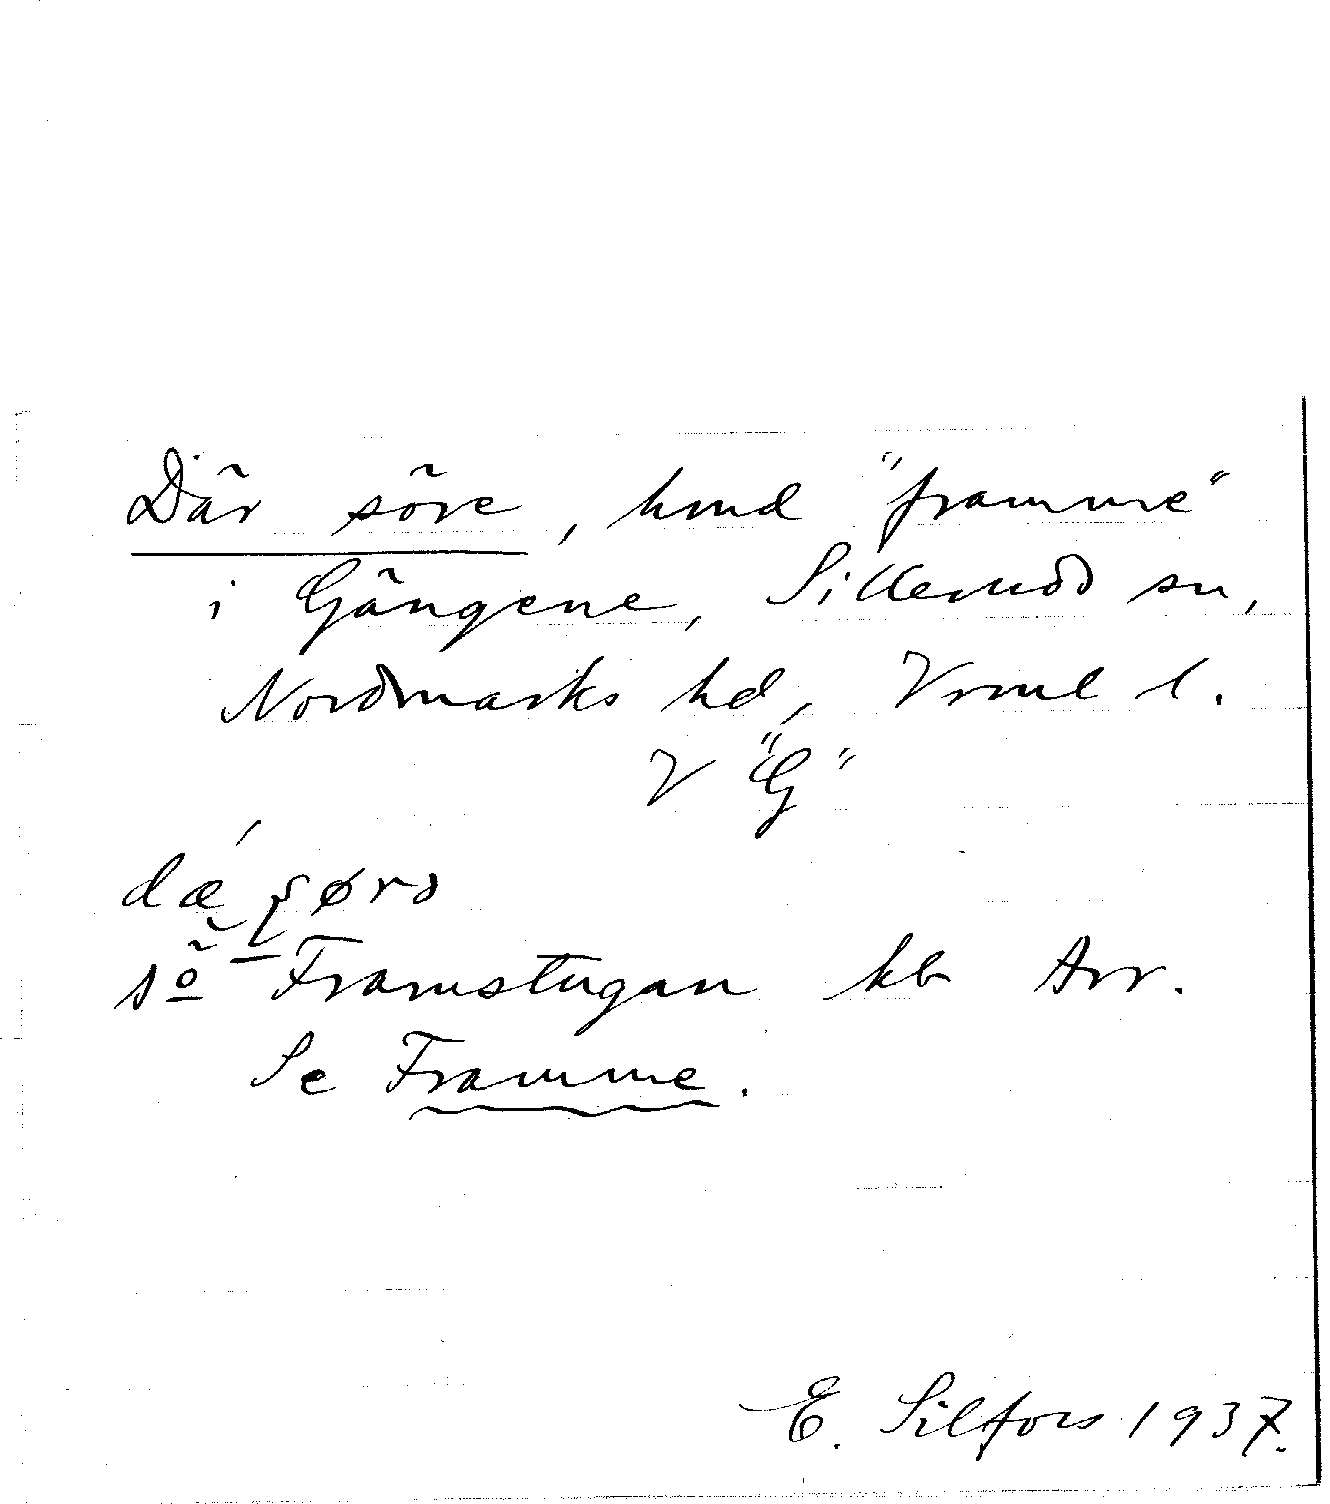 Där söre, hmd "framme"
i Gängene, Sillerudd sn,
Nordmarks hd, Vrml l.
V "G"
dæ
sö Framstugan kb Arr.
Se Framme.
E. Silfors 1937.